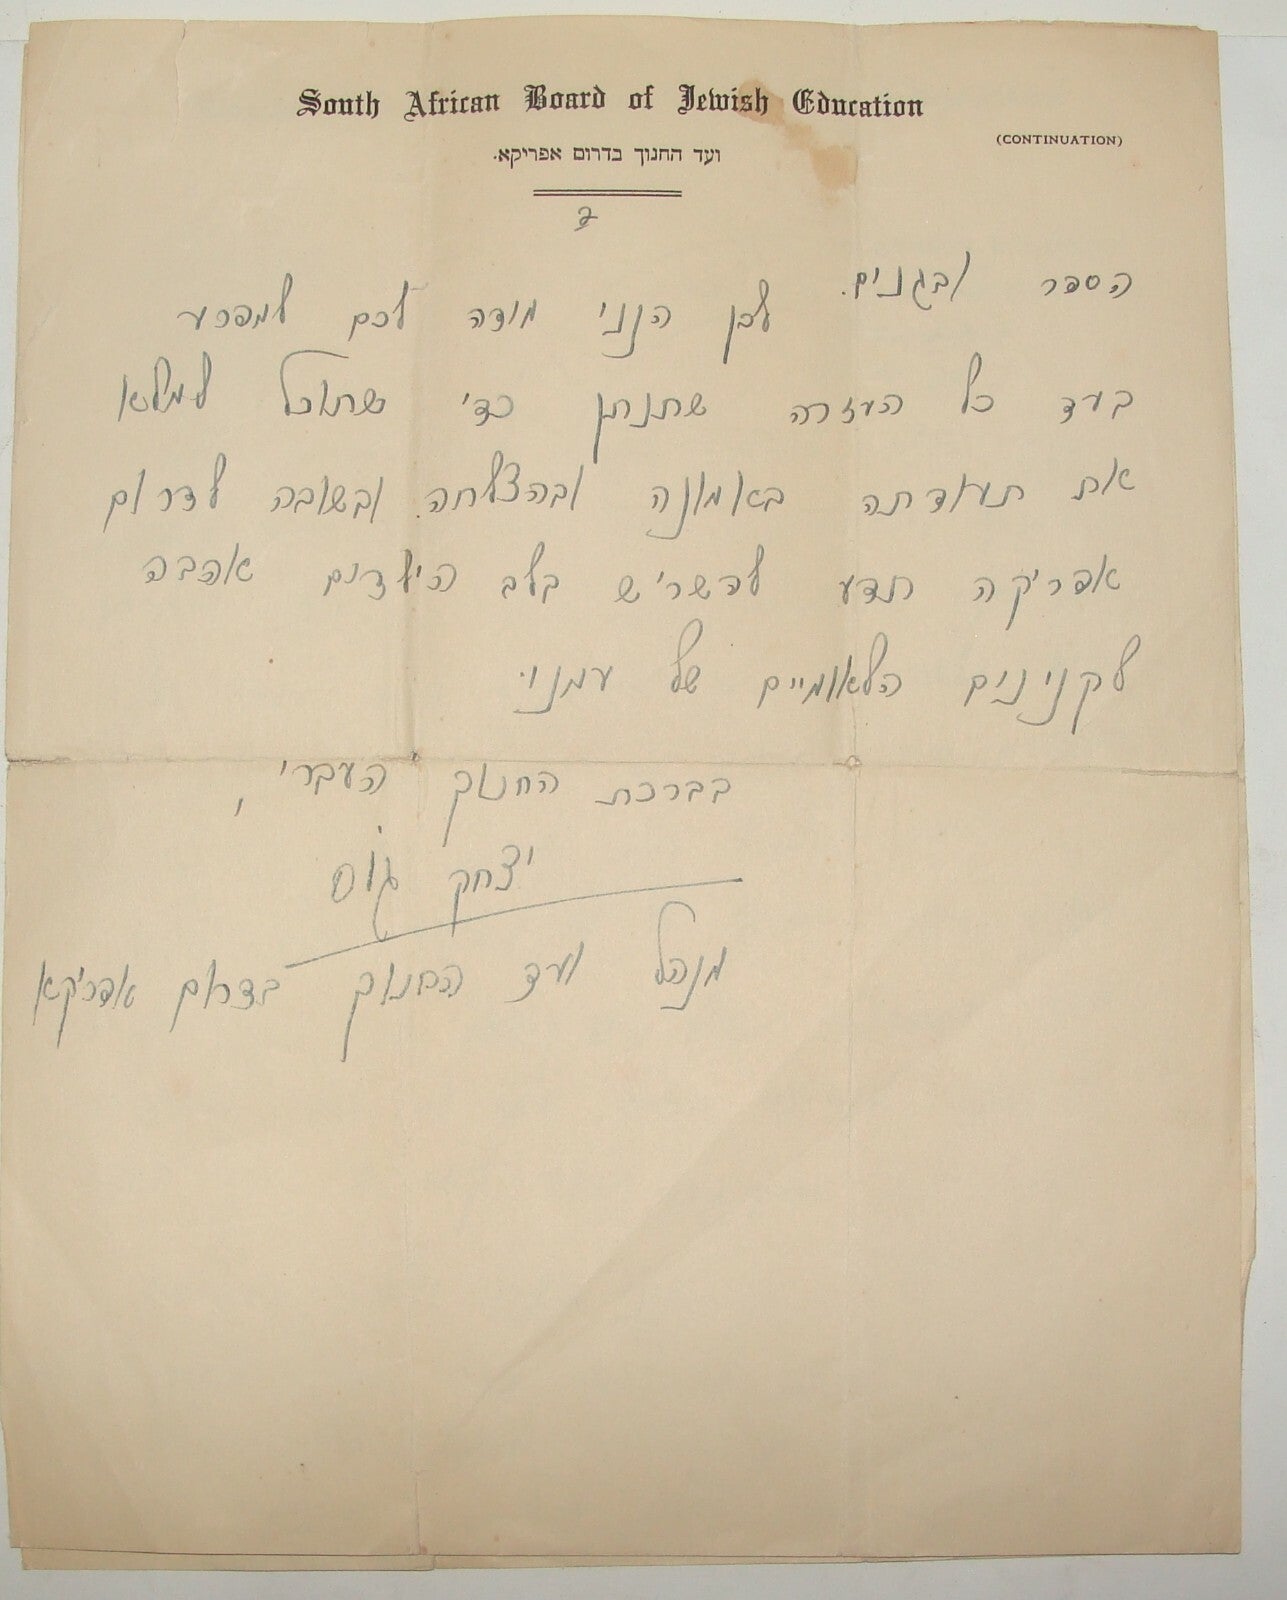 South African Board of Jewish Education
(CONTINUATION)
ועד החנוך בדרום אפריקא.
2
הספר ובגנים. לכן הנני מודה לכם למפרע
בעד כל העזרה שתנתן כדי שתוכל למלא
את תעודתה באמונה ובהצלחה. ובשובה לדרום
אפריקה תדע להשריש בלב הילדים אהבה
לקנינים הלאומיים של עמנו.
בברכת החנוך העברי,
יצחק גוס
מנהל ועד החנוך בדרום אפריקא